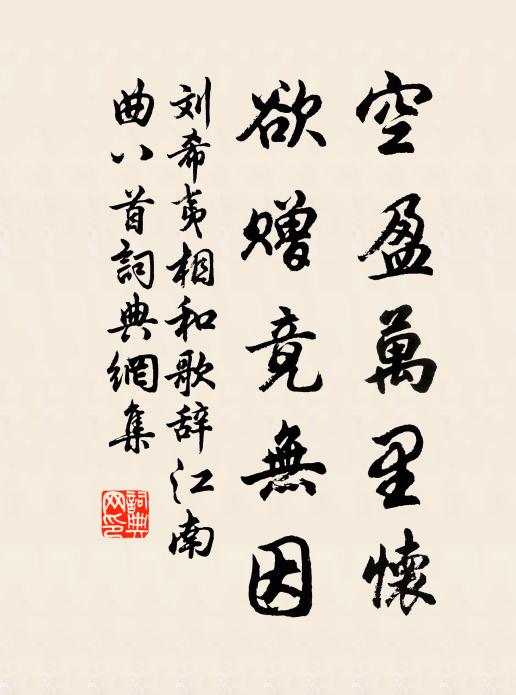 空盈萬里懷
欲贈竟無因
刘希夷相和歌辞江南
曲八首詞典網集
詞典
网印